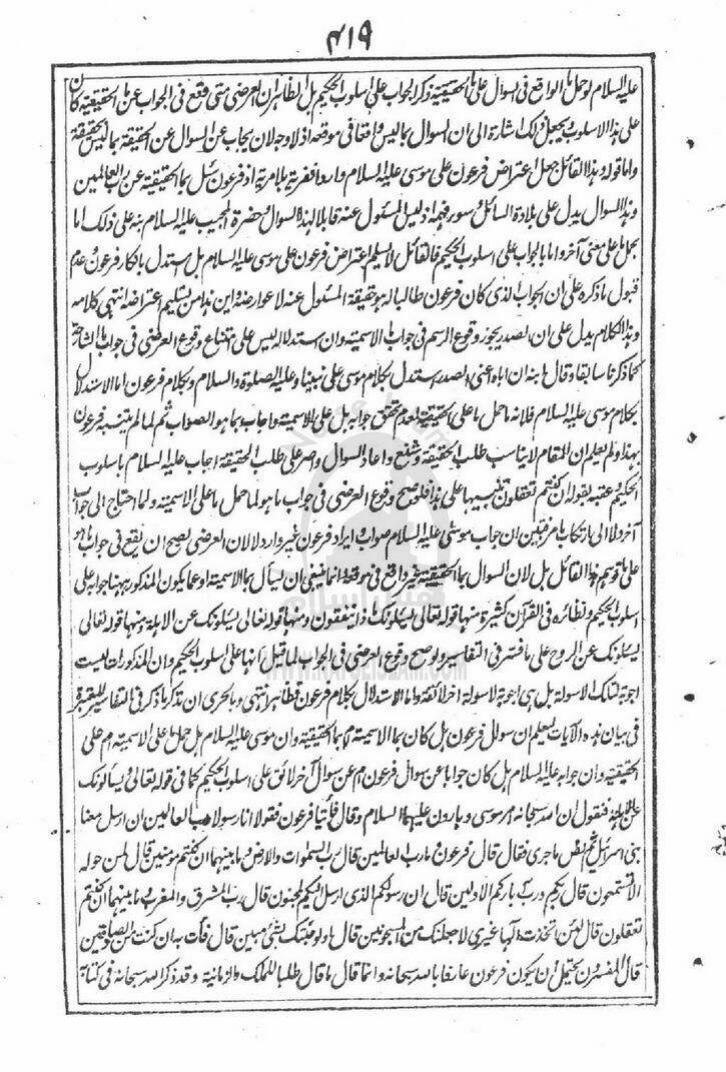 ۴۱۹
عليه السلام لو حمل ما الواقع فى السوال على ما الحقيقية ذكر الجواب على اسلوب الحكيم بل الظاهر ان العرضى متى وقع فى الجواب عن ما الحقيقية كان
على هذا الاسلوب يجعل ذلك اشارة الى ان السوال بما ليس واقعا فى موقعه اذ لا وجه لان يجاب عن السوال عن الحقيقة بما ليس بحقيقة
واما قوله وهذا القائل جعل اعتراض فرعون على موسى عليه السلام واردا ففرية بلا مرية اذ فرعون سئل بما الحقيقية عن رب العالمين
وهذا السوال يدل على بلادة السائل وسور فهمه اذ ليس المسئول عنه قابلا لهذا السوال وحضرة المجيب عليه السلام نبه على ذلك اما
بحمل ما على معنى آخر واما بالجواب على اسلوب الحكيم فالقائل لا يسلم اعتراض فرعون على موسى عليه السلام بل يستدل بانكار فرعون وعدم
قبول ما ذكره على ان الجواب الذى كان فرعون طالبا له هو حقيقة المسئول عنه لا عوارضه واين هذا من تسليم اعتراضه انتهى كلامه
وهذا الكلام يدل على ان الصدر يجوز وقوع الرسم فى جواب ما الاسمية وان استدلاله ليس على امتناع وقوع العرضى فى جواب ما الشارحة
كما ذكرنا سابقا وقال ابنه ان اباه اعنى الصدر استدل بكلام موسى على نبينا وعليه الصلوة والسلام وبكلام فرعون اما الاستدلال
بكلام موسى عليه السلام فلانه ما حمل ما على الحقيقية لعدم تحقق جوابه بل على الاسمية واجاب بما هو الصواب ثم لما لم يتنبه فرعون
بهذا ولم يعلم ان المقام لا يناسب طلب الحقيقة وشنع واعاد السوال واصر على طلب الحقيقة اجاب عليه السلام باسلوب
الحكيم وعقبه بقوله ان كنتم تعقلون تنبيها على هذا فلو صح وقوع العرضى فى جواب ما هو لما حمل ما على الاسمية ولما احتاج الى جواب
آخر دلا الى ارتكاب ما مرتين ان جاب موسى عليه السلام صواب وايراد فرعون غير وارد لا لان العرضى يصح ان يقع فى جواب ما هو
على ما توهم هذا القائل بل لان السوال بما الحقيقية غير واقع فى موقعه وانما ينبغى ان يسأل بما الاسمية او عما يكون المذكور ههنا جوابه على
اسلوب الحكيم ونظائره فى القرآن كثيرة منها قوله تعالى يسئلونك ماذا ينفقون ومنها قوله تعالى يسئلونك عن الاهلة ومنها قوله تعالى
يسئلونك عن الروح على ما فسر فى التفاسير ولو صح وقوع العرضى فى الجواب لما قيل انها على اسلوب الحكيم وان المذكورات ليست
اجوبة لتلك الاسولة بل هى اجوبة لاسولة اخر لائقة واما الاستدلال بكلام فرعون فظاهر انتهى وبالحرى ان نذكر ما ذكر فى التفاسير المعتبرة
فى بيان هذه الآيات ليعلم ان سوال فرعون بل كان بما الاسمية ام بما الحقيقية وان موسى عليه السلام بل حمل ما على الاسمية ام على
الحقيقية وان جوابه عليه السلام بل كان جوابا عن سوال فرعون ام عن سوال آخر لائق على اسلوب الحكيم كما فى قوله تعالى ويسألونك
عن الاهلة فنقول ان الله سبحانه امر موسى وهارون عليهما السلام وقال فأتيا فرعون فقولا انا رسول رب العالمين ان ارسل معنا
بنى اسرائيل ثم نقص ما جرى فقال قال فرعون وما رب العالمين قال رب السموات والارض وما بينهما ان كنتم موقنين قال لمن حوله
الا تستمعون قال ربكم ورب آبائكم الاولين قال ان رسولكم الذى ارسل اليكم لمجنون قال رب المشرق والمغرب وما بينهما ان كنتم
تعقلون قال لئن اتخذت الها غيرى لاجعلنك من المسجونين قال اولو جئتك بشئ مبين قال فأت به ان كنت من الصادقين
قال المفسرون يحتمل ان يكون فرعون عارفا بالله سبحانه وانما قال ما قال طلبا للملك والرياسة وقد ذكر الله سبحانه فى كتابه